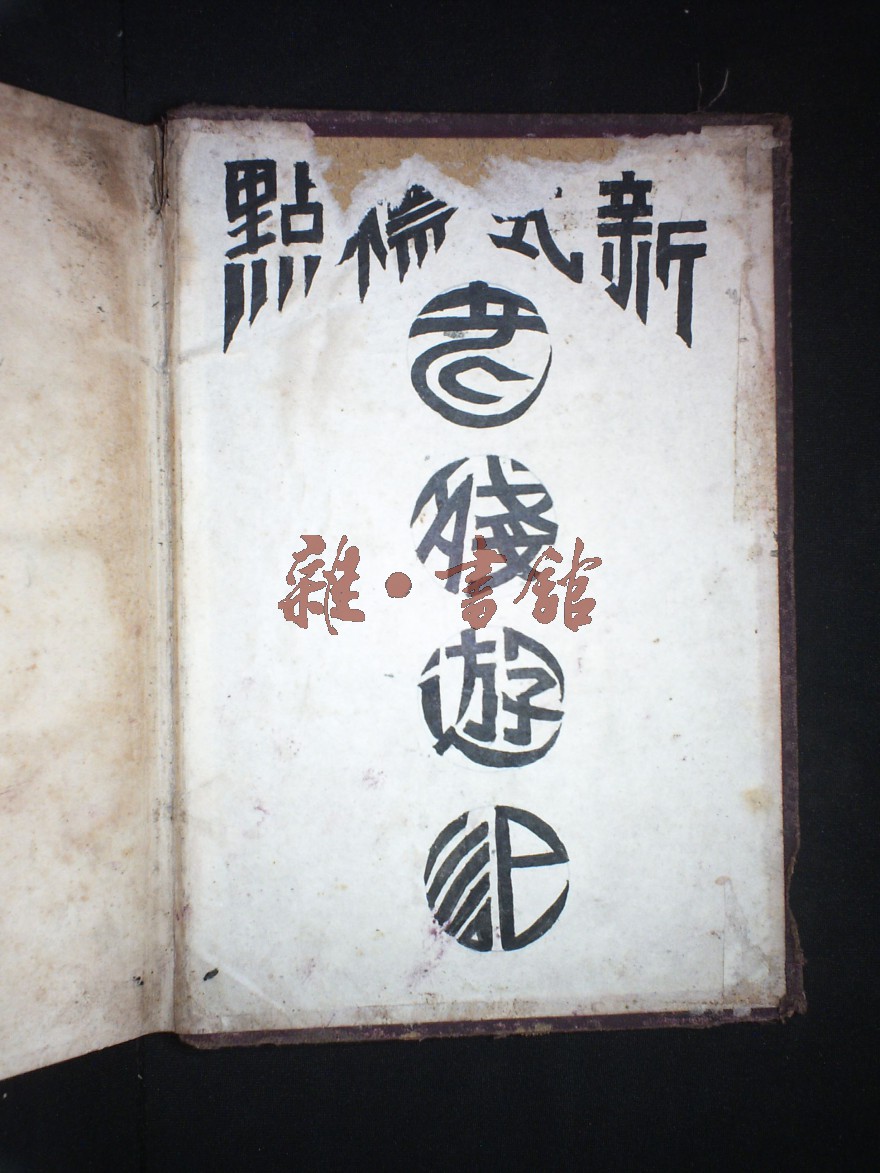 新式標點
老殘遊記
雜·書館